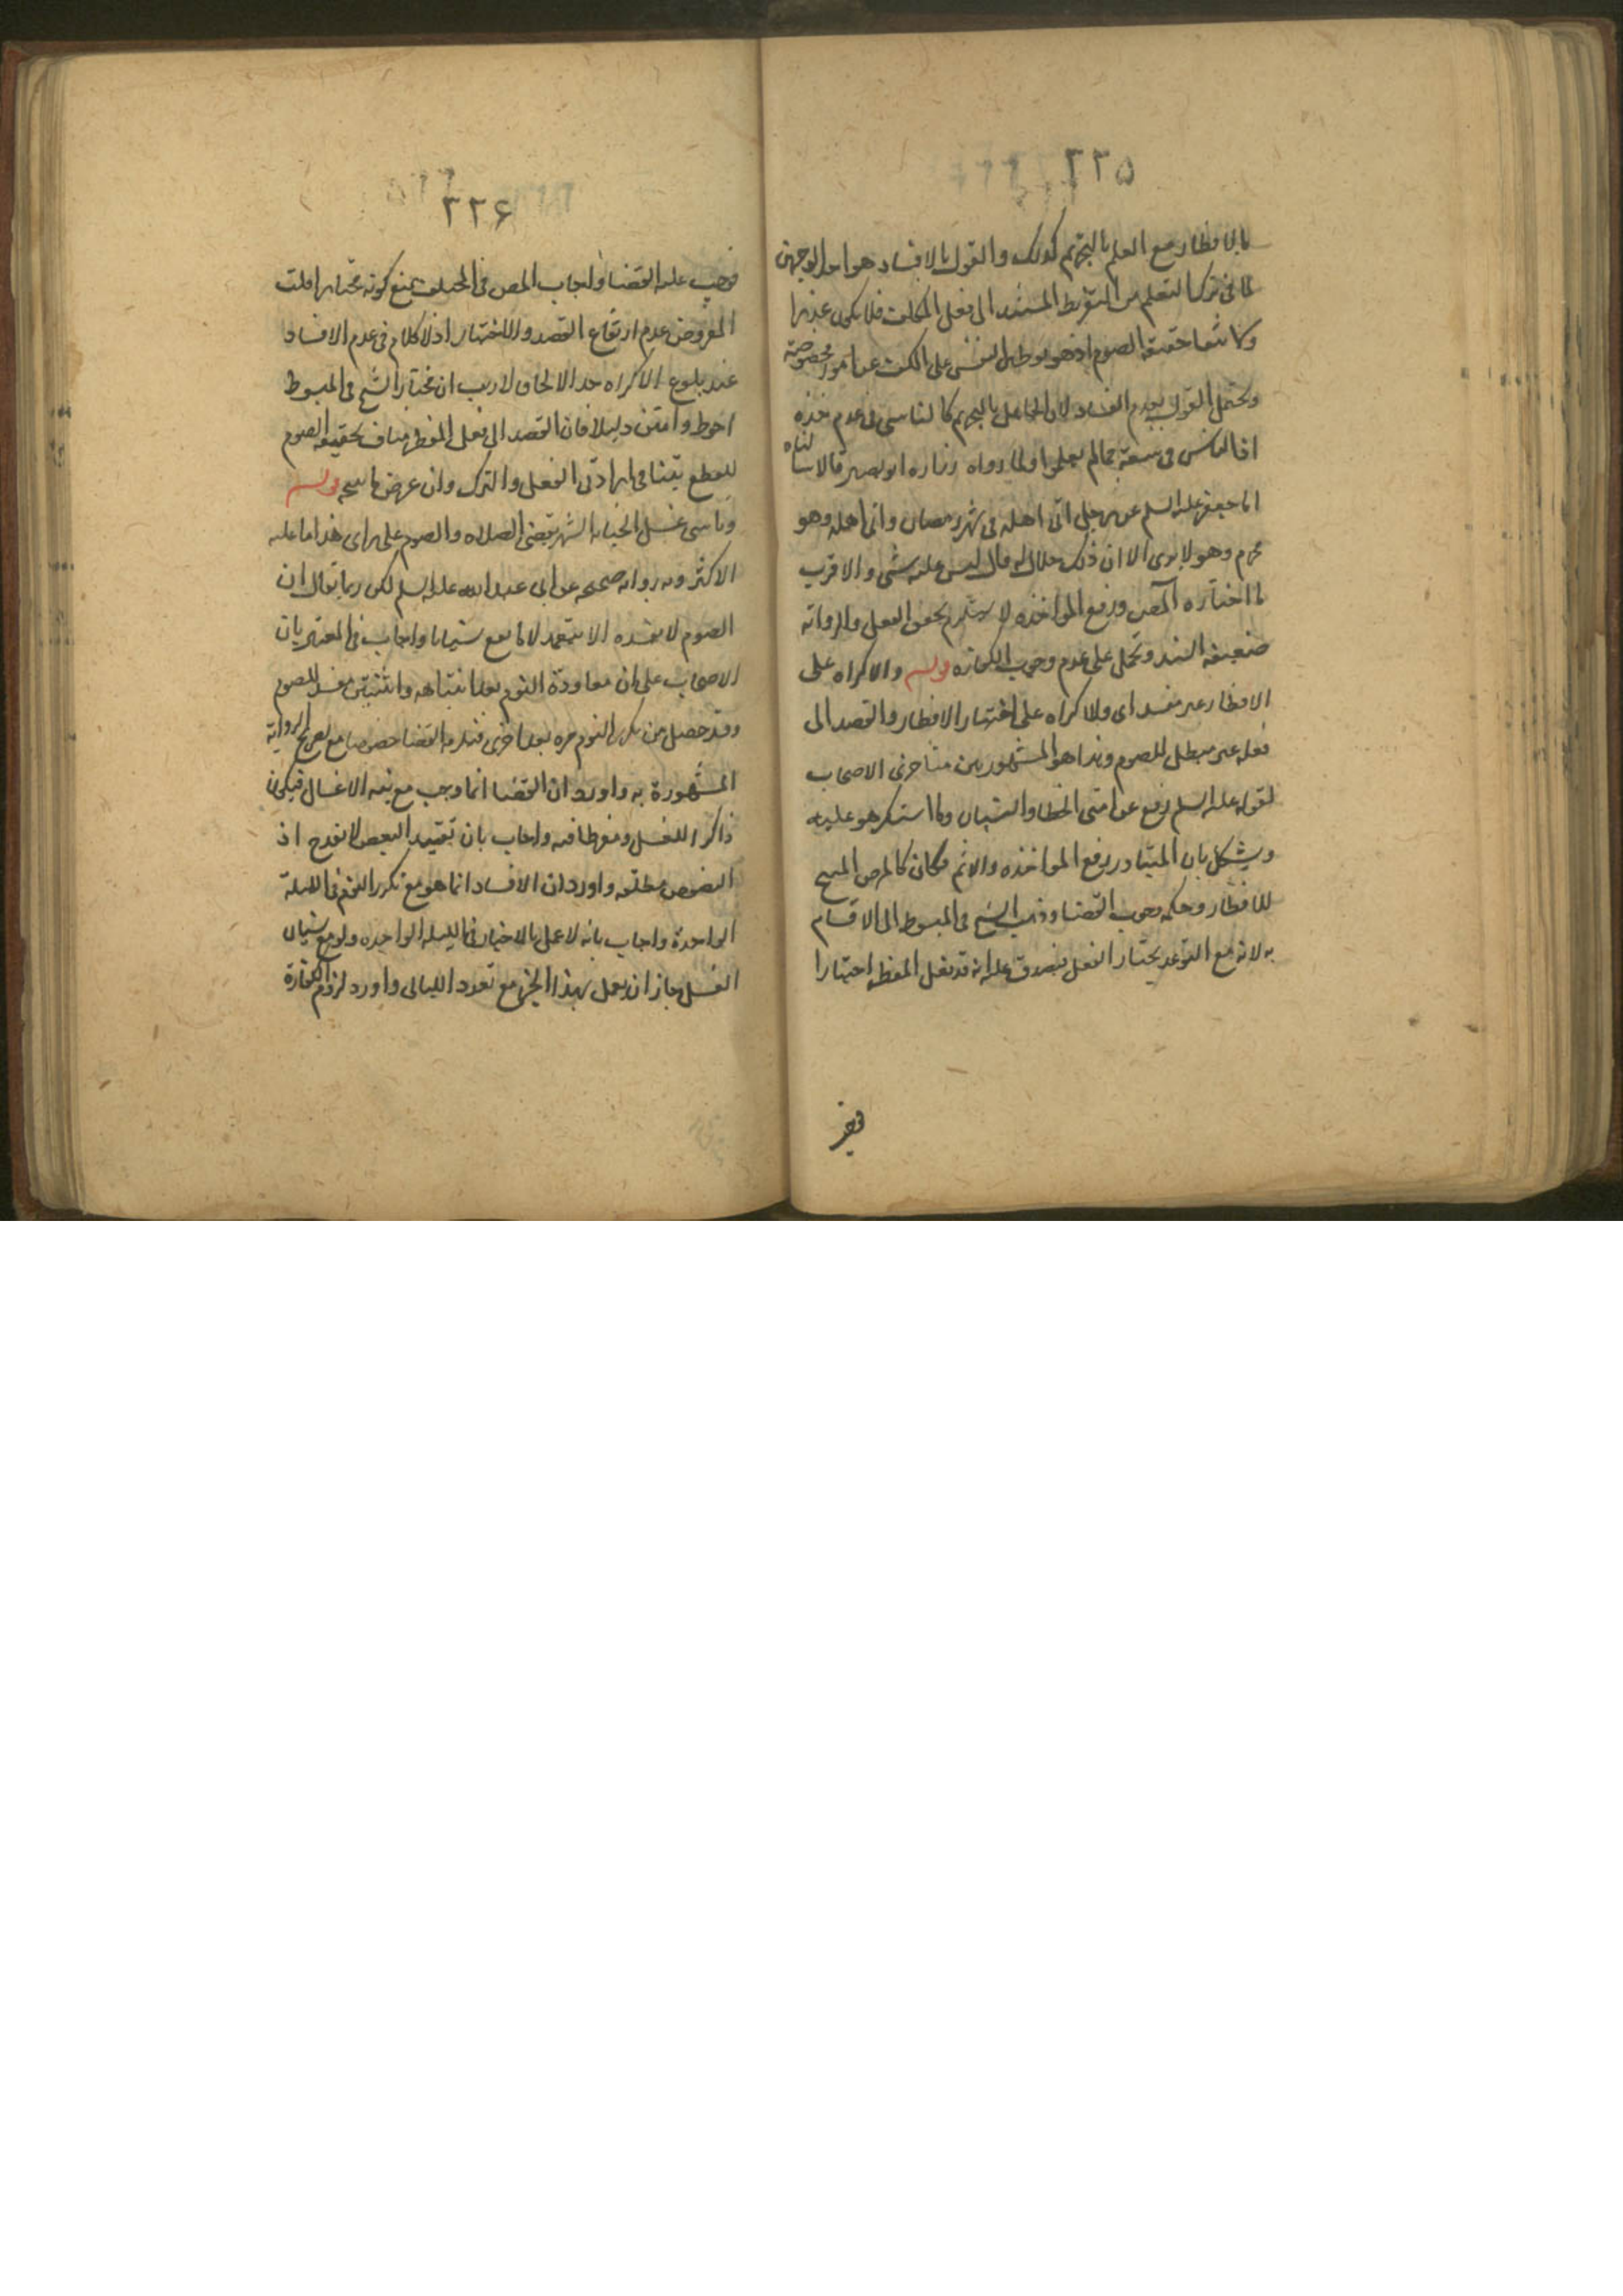 ٢٢٥
بالافطار مع العلم بالتحريم كذلك والقول بالافساد هو احد الوجهين
لما في ترك التعلم من التفريط المستند الى فعل المكلف فلا يكون عذرا
ولانتفا حقيقة الصوم اذ هو توطين النفس على الكف عن امور مخصوصة
ويحتمل القول بعدم الفساد لان الجاهل بالتحريم كالناسي في عدم
اذ الناس في سعة مما لم يعلموا ولما رواه زراره وابو بصير قالا سالنا
ابا جعفر عليه السلم عن رجل اتى اهله في شهر رمضان واتى اهله وهو
محرم وهو لا يرى الا ان ذلك حلال له قال ليس عليه شي والاقرب
ما اختاره المص ورفع المواخذه لا يستلزم لحوق الفعل والرواية
ضعيفة السند وتحمل على عدم وجوب الكفاره قوله والاكراه على
الافطار غير مفسد اي والاكراه على اختيار الافطار والقصد الى
فعله غير مبطل للصوم وهذا هو المشهور بين متاخري الاصحاب
لقوله عليه السلم رفع عن امتي الخطا والنسيان وما استكرهوا عليه
ويشكل بان المتبادر رفع المواخذه والاثم فكان كالمرض المبيح
للافطار وحكمه وجوب القضا وذهب الشيخ في المبسوط الى الافساد
به لانه مع التوعد يختار الفعل فيصدق عليه انه قد فعل المفطر اختيارا
فيجب
٢٢۶
فوجب عليه القضا واجاب المص في المختلف بمنع كونه مختارا قلت
المفروض عدم ارتفاع القصد والاختيار اذ لا كلام في عدم الافساد
عند بلوغ الاكراه حد الالجا ولا ريب ان مختار الشيخ في المبسوط
احوط وامتن دليلا فان القصد الى فعل المفطر مناف لحقيقة الصوم
للقطع بتنافي ارادتي الفعل والترك وان عرض ما يبيحه قوله
وناسي غسل الجنابه الشهر يقضي الصلاه والصوم على راى هذا ما عليه
الاكثر وبه رواية صحيحه عن ابي عبد الله عليه السلم لكن ربما يقال ان
الصوم لا يفسده الا تعمد لا ما يقع نسيانا واجاب في المعتبر بان
الاصحاب على ان معاودة النوم بعد انتباهه وانتبهتين مفسد للصوم
وقد حصل من تكرر النوم مره بعد اخرى فيلزمه القضا خصوصا مع تصريح الرواية
المشهورة به واورد ان القضا انما وجب مع نية الاغتسال فيكون
ذاكرا للغسل ومفرطا فيه واجاب بان تقييد البعض لا يقدح اذ
النصوص مطلقه واورد ان الافساد انما هو مع تكرر النوم في الليلة
الواحدة واجاب بانه لا عمل بالاخبار في الليلة الواحده ولو مع نسيان
الغسل جاز ان يعمل بهذا الخبر مع تعدد الليالى واورد لزوم الكفارة